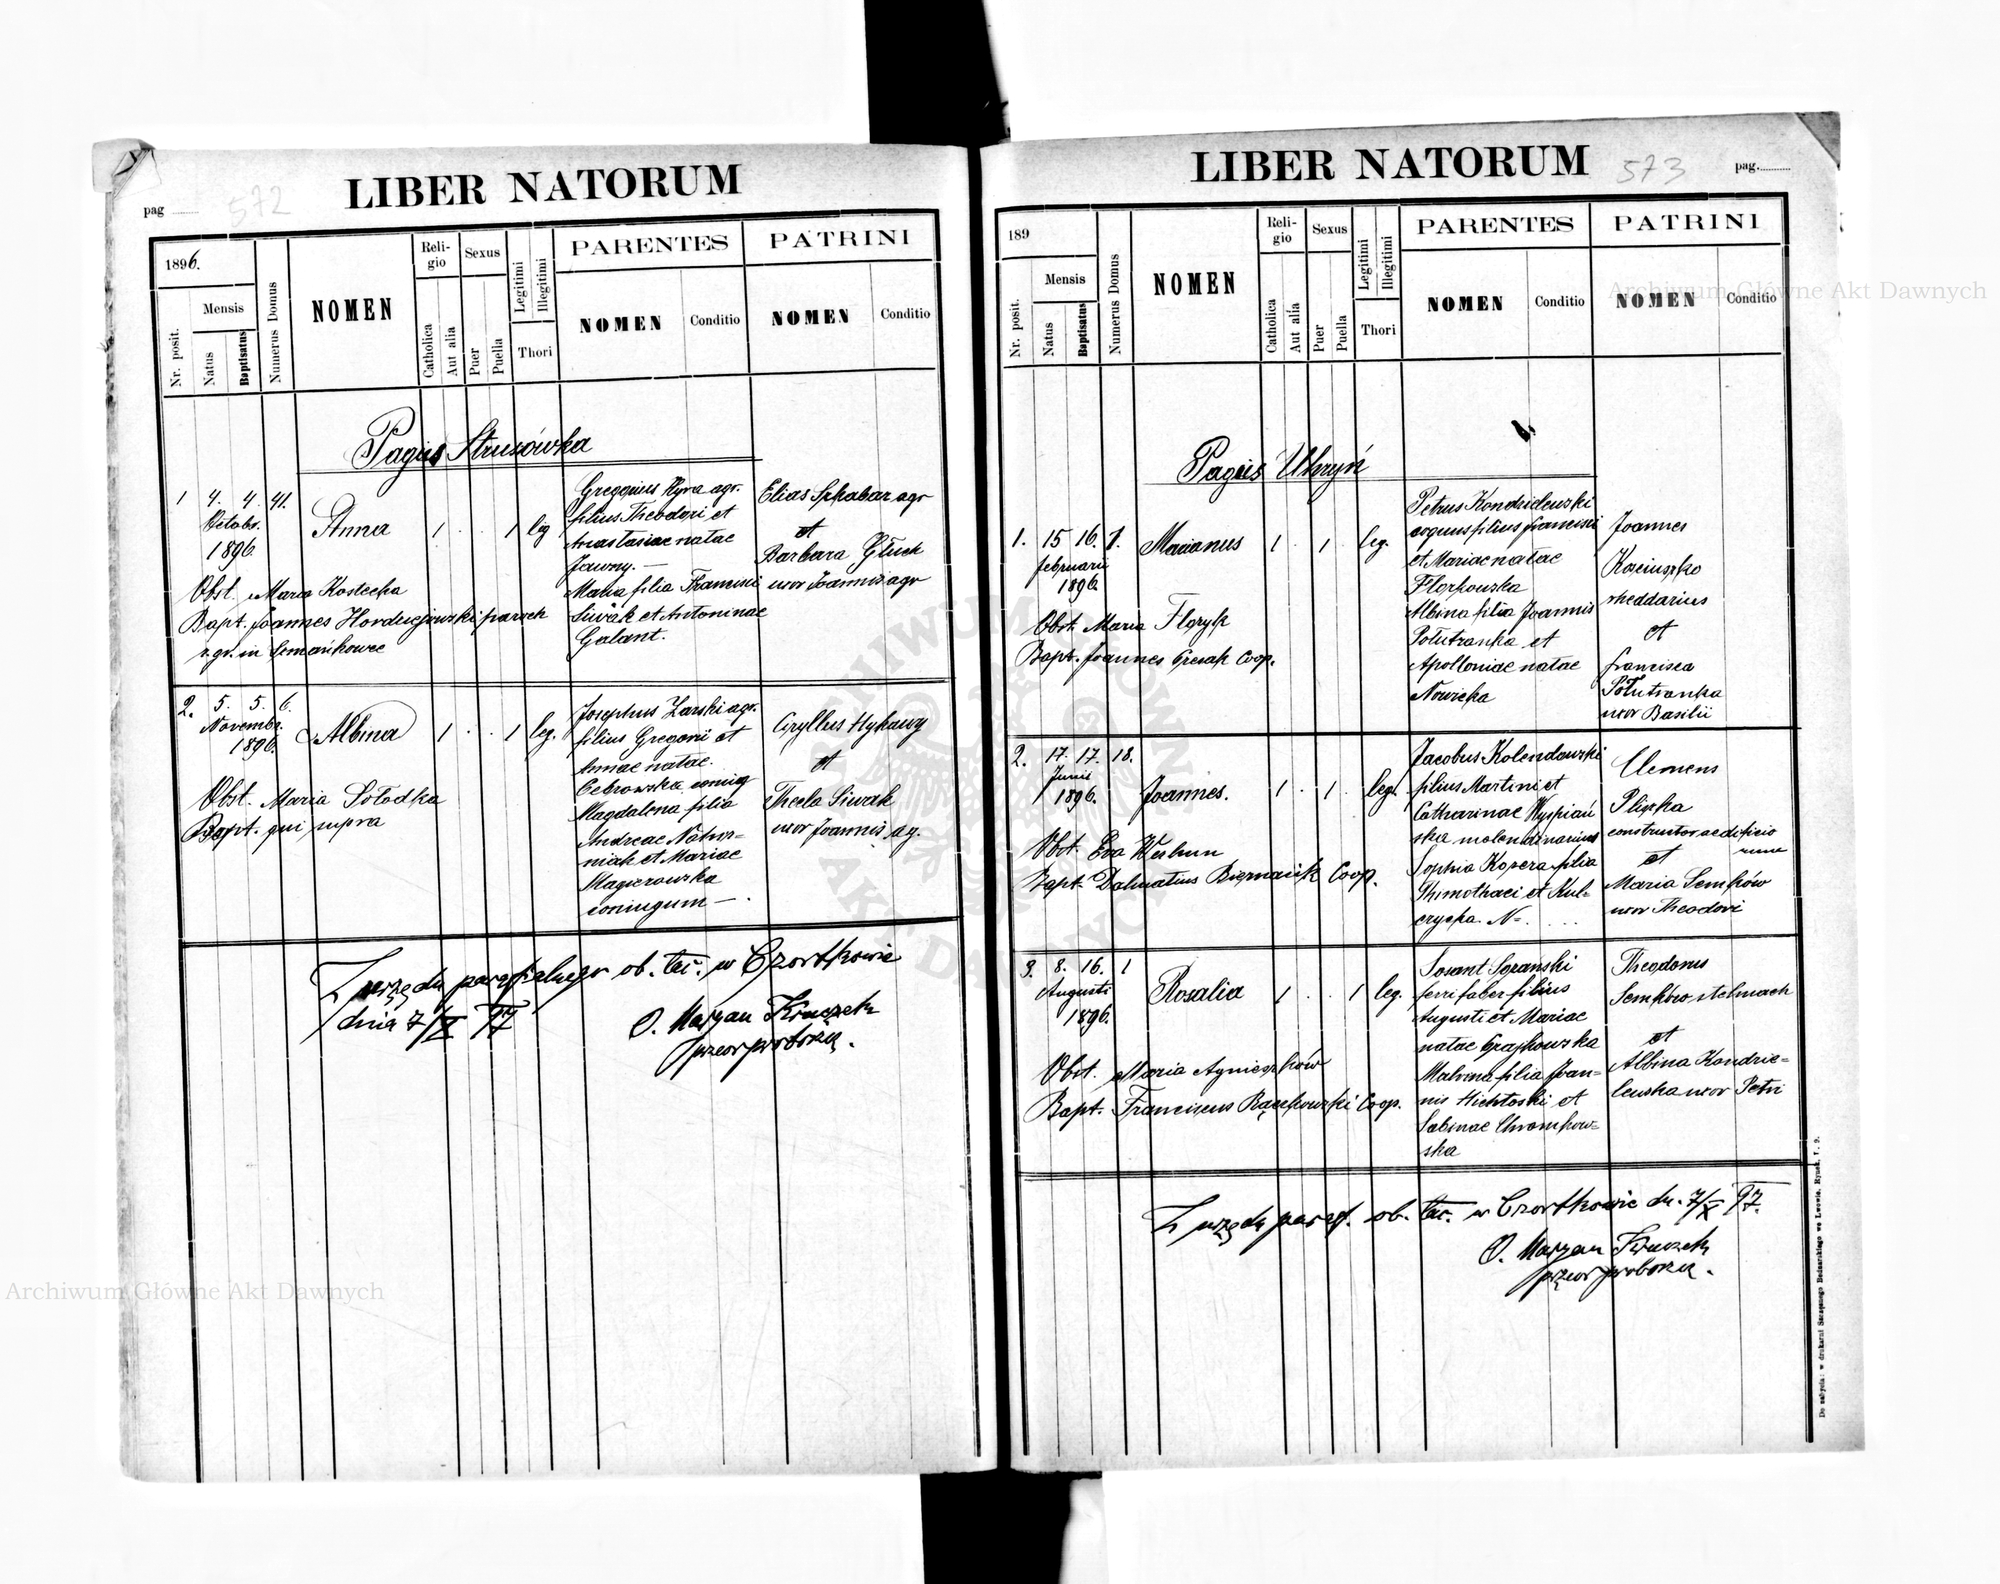 LIBER NATORUM
pag 572
1896.
Nr. posit.
Mensis
Natus
Baptisatus
Numerus Domus
NOMEN
Religio
Catholica
Aut alia
Sexus
Puer
Puella
Legitimi
Illegitimi
Thori
PARENTES
NOMEN
Conditio
PATRINI
NOMEN
Conditio
Pagus Strusówka
1 4. 4. 41.
Octobr.
1896
Anna
1 . . 1 leg
Gregorius Hyra agr.
filius Theodori et
Anastasiae natae
Jawny. —
Maria filia Francisci
Siwak et Antoninae
Galant.
Elias Szkabar agr
et
Barbara Głuch
uxor Joannis agr
Obst. Maria Kostecka
Bapt. Joannes Hordyejewski paroch
r. gr. in Semańkowce
2. 5. 5. 6.
Novembr.
1896.
Albina
1 . . 1 leg.
Josephus Zarski agr.
filius Gregorii et
Annae natae
Cebrowska coniug
Magdalena filia
Andreae Natur-
niak et Mariae
Magierowska
coniugum — .
Cyryllus Hykawy
et
Thecla Siwak
uxor Joannis ag.
Obst. Maria Sołodka
Bapt. qui supra
Z urzędu parafialnego ob. łać. w Czortkowie
dnia 7/X 97
O. Maryan Kruczek
przeor proboszcz.
LIBER NATORUM
573 pag.
189
Nr. posit.
Mensis
Natus
Baptisatus
Numerus Domus
NOMEN
Religio
Catholica
Aut alia
Sexus
Puer
Puella
Legitimi
Illegitimi
Thori
PARENTES
NOMEN
Conditio
PATRINI
NOMEN
Conditio
Pagus Uhryń
1. 15 16. 1.
februarii
1896.
Marianus
1 . 1 . leg.
Petrus Kondrielewski
coquus filius Francisci
et Mariae natae
Florkowska
Albina filia Joannis
Połutranka et
Apolloniae natae
Nowicka
Joannes
Kościuszko
rheddarius
et
Francisca
Połutranka
uxor Basilii
Obst. Maria Floryk
Bapt. Joannes Cresak Coop.
2. 17. 17. 18.
Junii
1896.
Joannes.
1 . 1 . leg.
Jacobus Kolendowski
filius Martini et
Catharinae Wyspiań
ska molendinarius
Sophia Kozera filia
Thimothaei et Kul-
czycka. N=. . . .
Clemens
Pliszka
constructor aedificio
rum
et
Maria Semków
uxor Theodori
Obst. Eva Weshun
Bapt. Dalmatius Biernacik Coop.
3. 8. 16. 1
Augusti
1896.
Rosalia
1 . . 1 leg.
Sosant Soranski
ferrifaber filius
Augusti et Mariae
natae Grajkowska
Malvina filia Joan-
nis Hichtoski et
Sabinae Chromkow-
ska
Theodorus
Semków stelmach
et
Albina Kondrie-
lewska uxor Petri
Obst. Maria Agnieszków
Bapt. Franciscus Rączkowski Coop.
Z urzędu paraf. ob. łać. w Czortkowie dn. 7/X 97.
O. Maryan Kruczek
przeor proboszcz.
Do nabycia: w drukarni Szczęsnego Bednarskiego we Lwowie, Rynek, l. 9.
Archiwum Główne Akt Dawnych
Archiwum Główne Akt Dawnych
ARCHIWUM GŁÓWNE AKT DAWNYCH